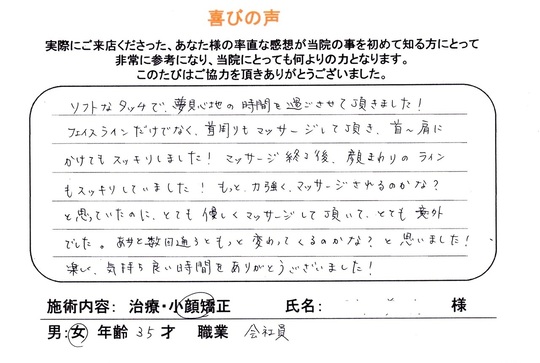 喜びの声
実際にご来店くださった、あなた様の率直な感想が当院の事を初めて知る方にとって
非常に参考になり、当院にとっても何よりの力となります。
このたびはご協力を頂きありがとうございました。
ソフトなタッチで、夢見心地の時間を過ごさせて頂きました!
フェイスラインだけでなく、首周りもマッサージして頂き、首〜肩に
かけてもスッキリしました! マッサージ終了後、顔まわりのライン
もスッキリしていました! もっと、力強く、マッサージされるのかな?
と思っていたのに、とても優しくマッサージして頂いて、とても意外
でした。あと数回通うともっと変わってくるのかな?と思いました!
楽しい、気持ち良い時間をありがとうございました!
施術内容: 治療・小顔矯正 氏名: 様
男:女 年齢 35才 職業 会社員